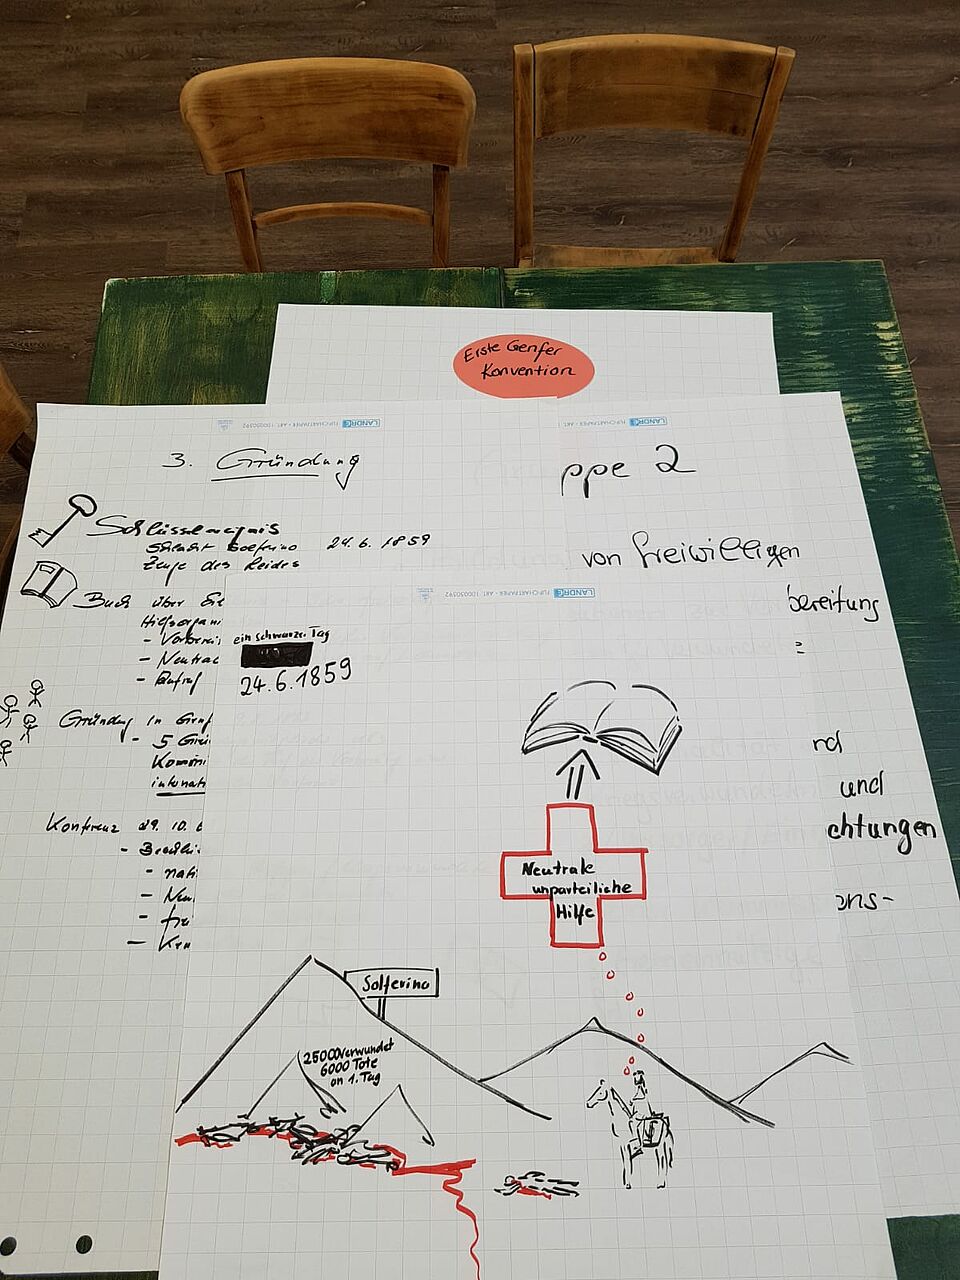 Erste Genfer
Konvention
LANDRÉ FLIPCHARTPAPIER · ART. 100050592
3. Gründung
Schlüsselereignis
Schlacht Solferino 24.6.1859
Zeuge des Leides
Buch über Sie
Hilfsorgani
- Vorberei
- Neutral
- Aufruf
Gründung in Genf
- 5
Kommi
internati
Konferenz 29. 10.
-
- nati
- Neu
- frei
ppe 2
von freiwilligen
bereitung
nd
und
chtungen
ons-
LANDRÉ FLIPCHARTPAPIER · ART. 100050592
ein schwarzer Tag
24.6.1859
Neutrale
unparteiliche
Hilfe
Solferino
25000 verwundet
6000 Tote
an 1. Tag